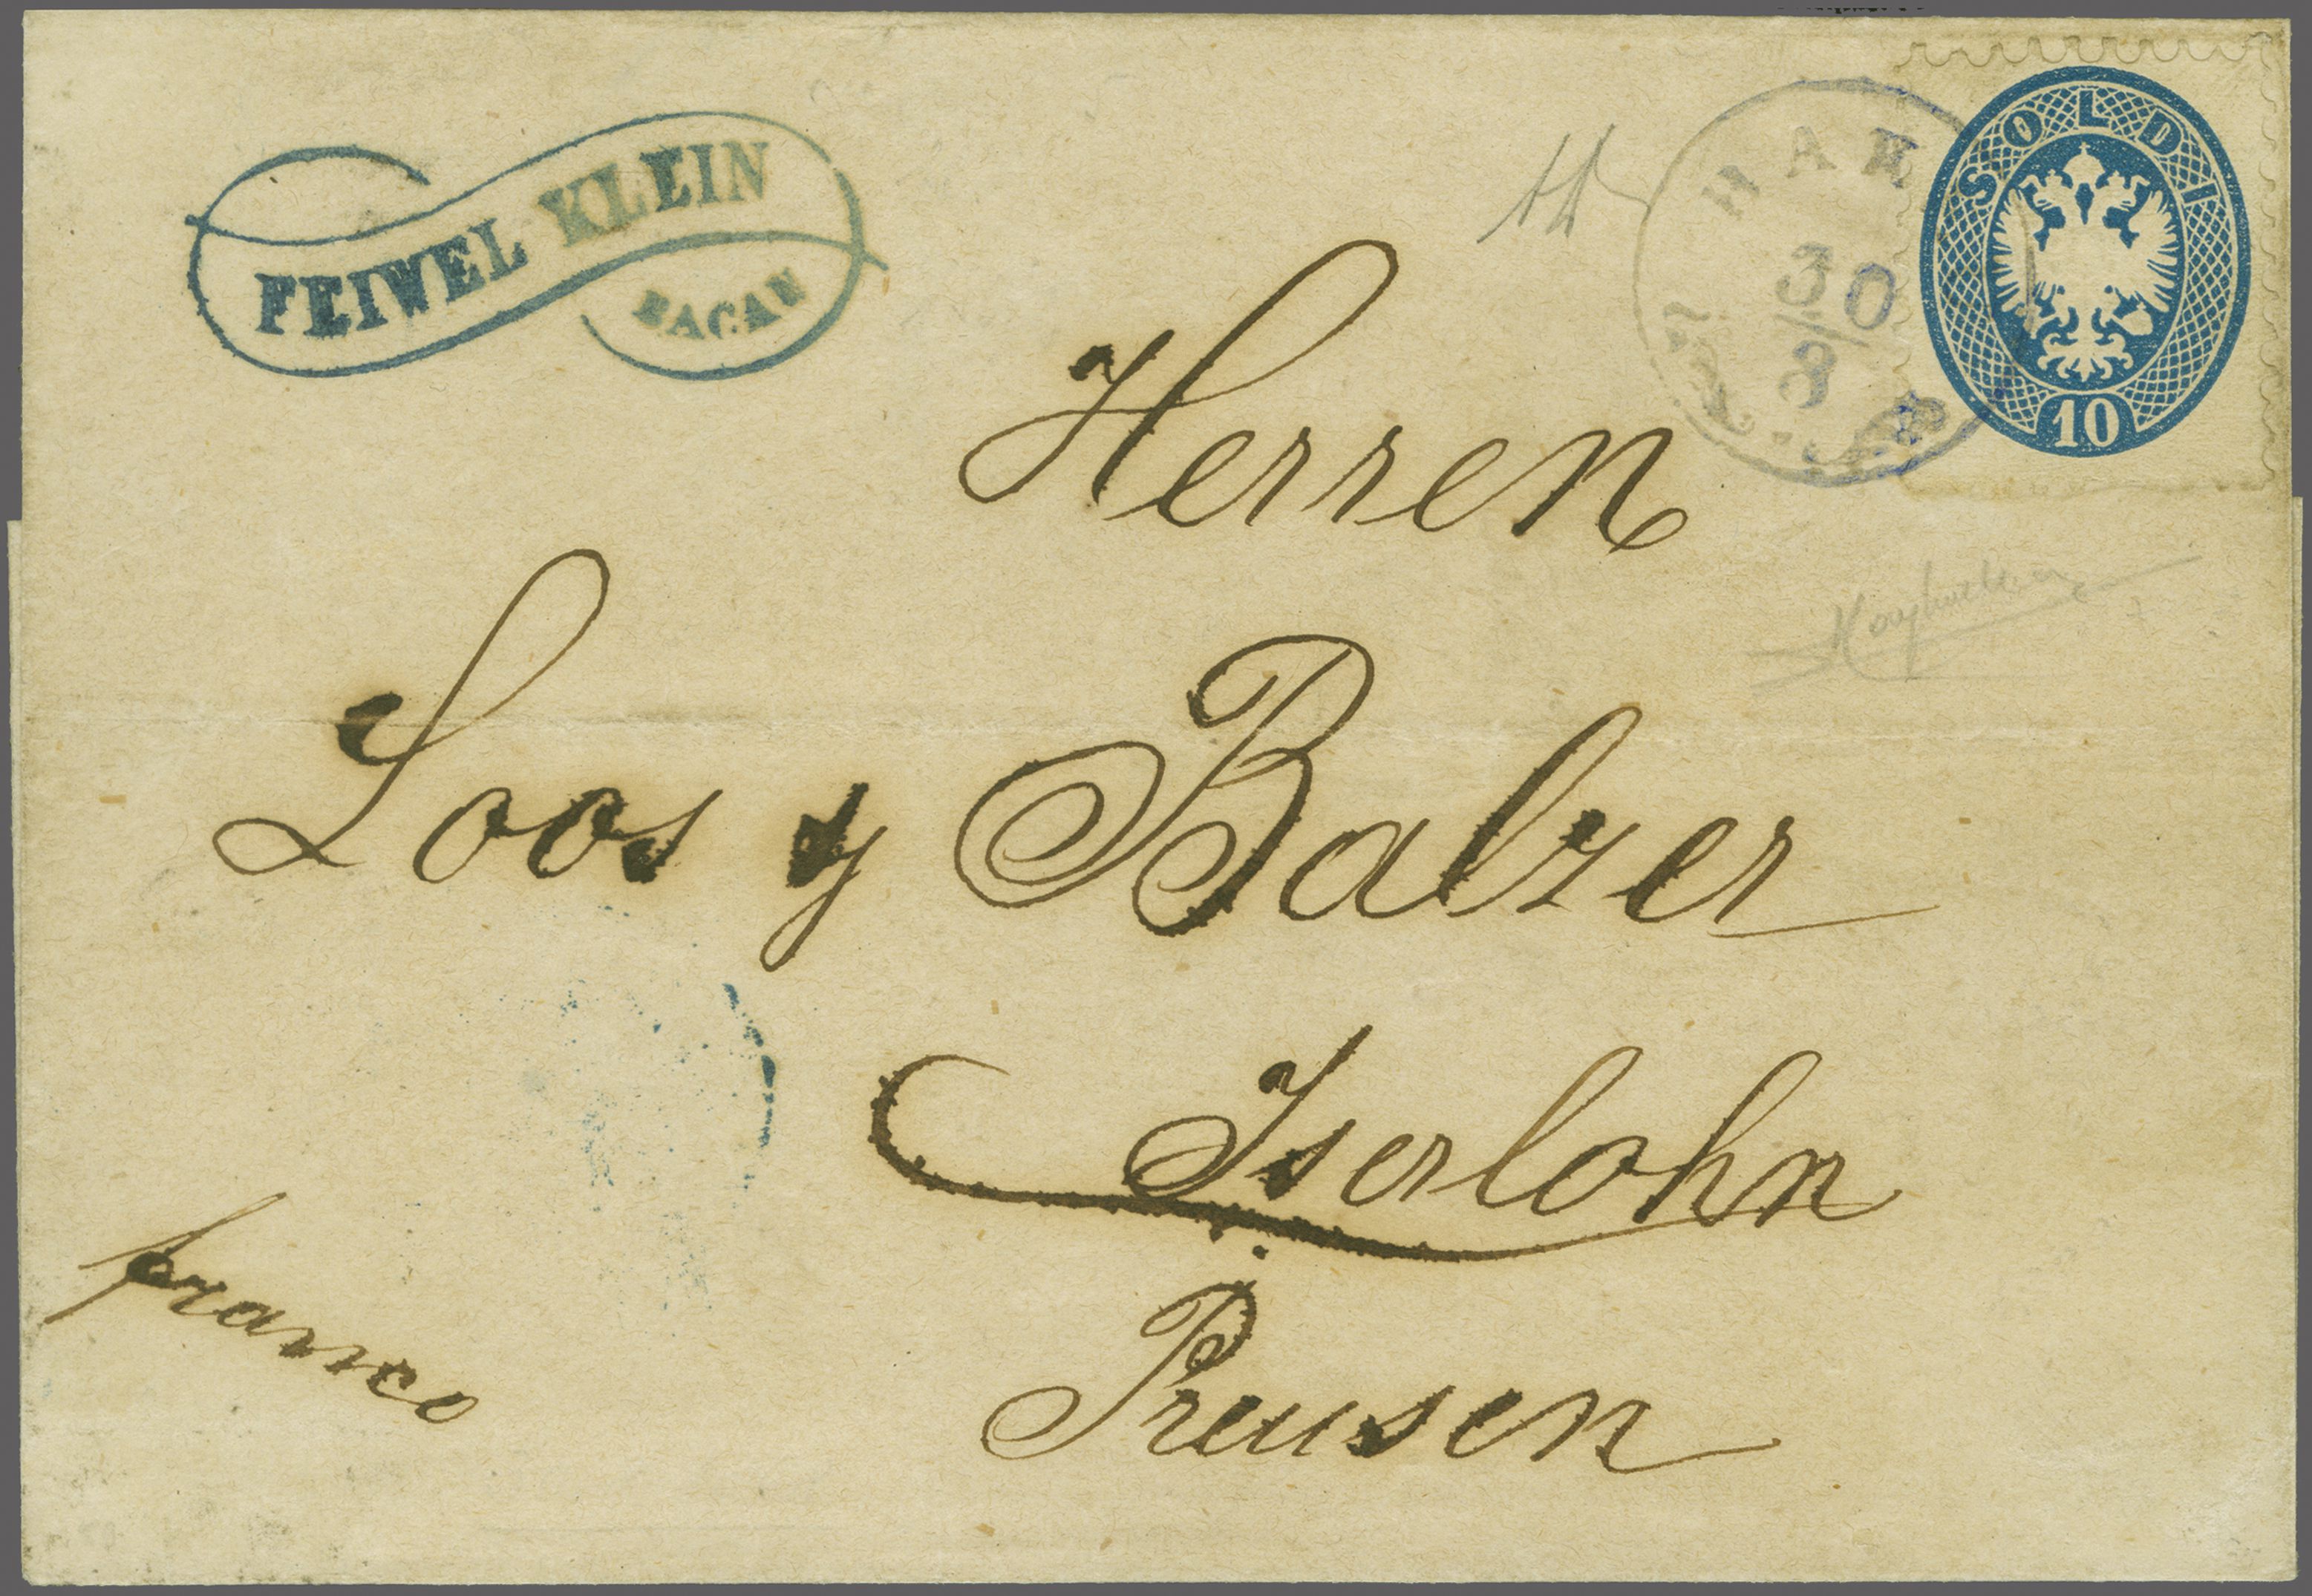 FEIWEL KLEIN
BACAU
30
8
SOLDI
10
Herren
Loos & Balzer
Iserlohn
Preusen
franco